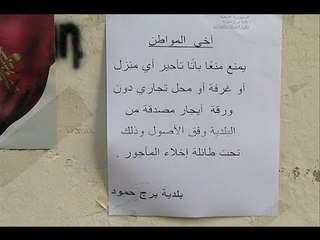 أخي المواطن
يمنع منعًا باتًا تأجير أي منزل
أو غرفة أو محل تجاري دون
ورقة أيجار مصدقة من
البلدية وفق الأصول وذلك
تحت طائلة إخلاء المأجور .
بلدية برج حمود